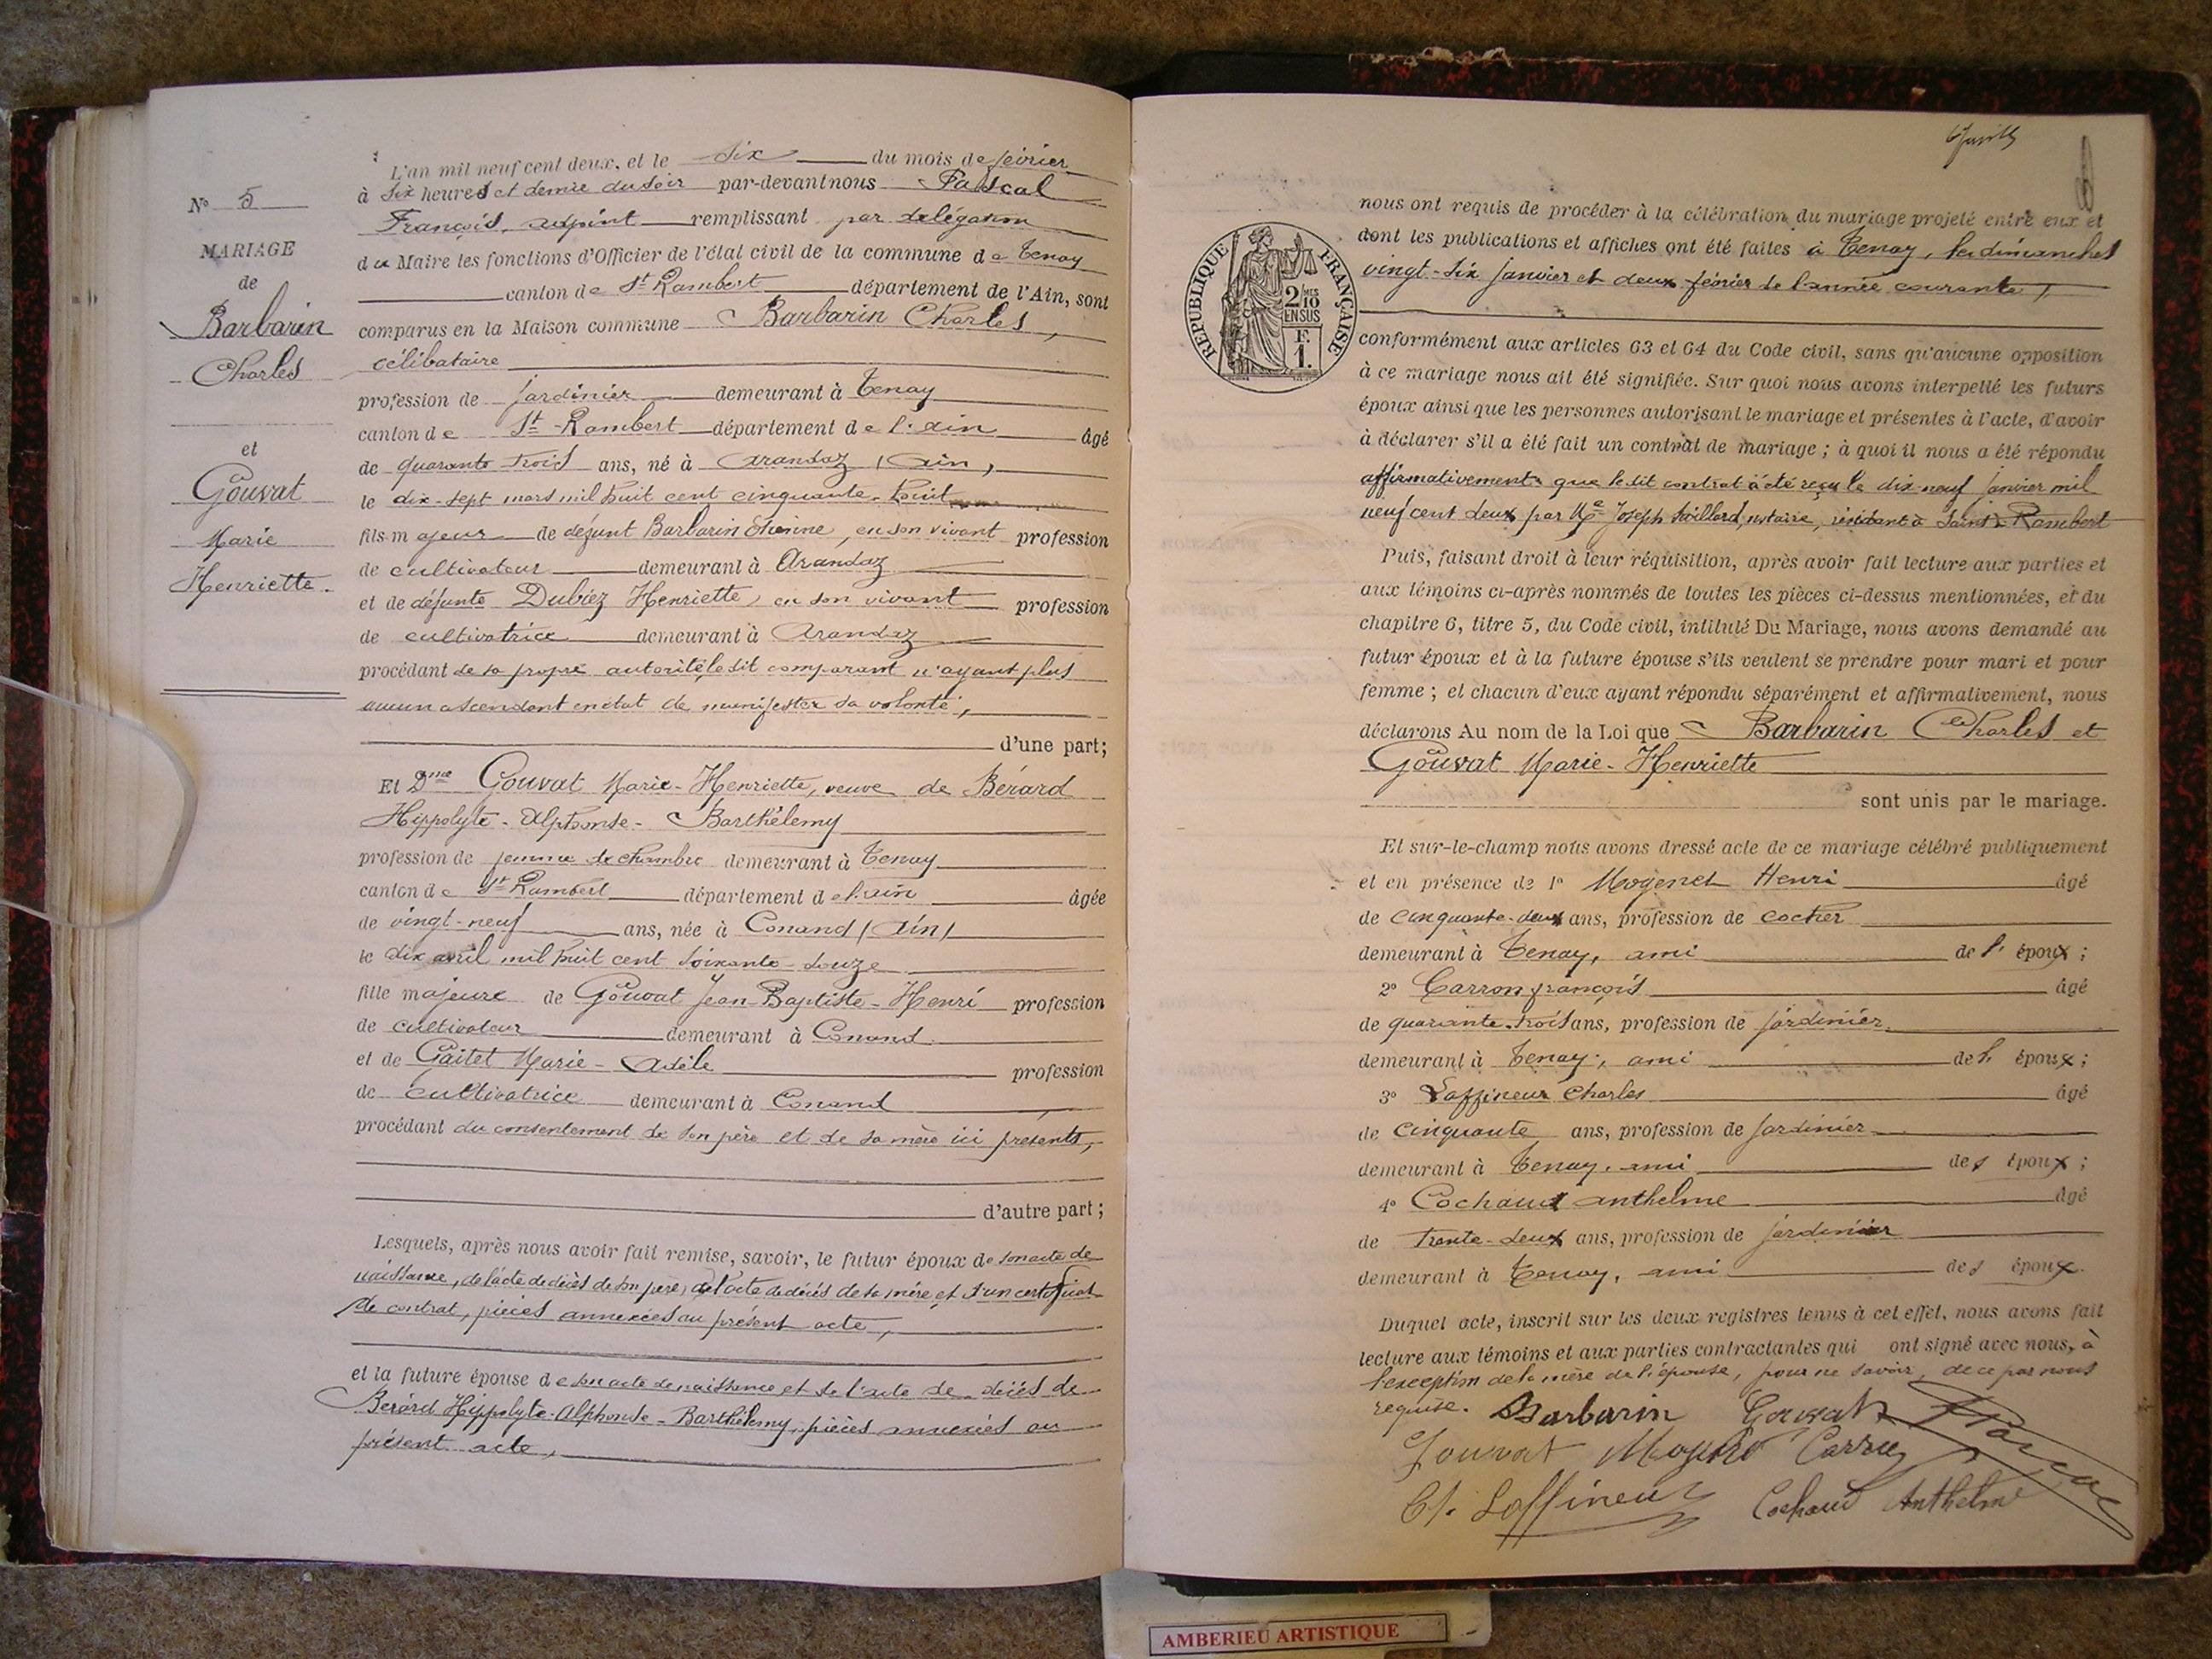 N° 5
MARIAGE
de
Barbarin
Charles
et
Gouvat
Marie
Henriette.
L'an mil neuf cent deux, et le six du mois de février
à six heures et demie du soir par-devant nous Pascal
François, adjoint remplissant par délégation
du Maire les fonctions d'Officier de l'état civil de la commune de Tenay
canton de St Rambert département de l'Ain, sont
comparus en la Maison commune Barbarin Charles,
célibataire
profession de jardinier demeurant à Tenay
canton de St-Rambert département de l'Ain âgé
de quarante trois ans, né à Arandaz (Ain),
le dix-sept mars mil huit cent cinquante-huit
fils majeur de défunt Barbarin Etienne, en son vivant profession
de cultivateur demeurant à Arandaz
et de défunte Dubiez Henriette, en son vivant profession
de cultivatrice demeurant à Arandaz
procédant de sa propre autorité, ledit comparant n'ayant plus
aucun ascendant en état de manifester sa volonté,
d'une part;
Et Dme Gouvat Marie-Henriette, veuve de Bérard
Hippolyte-Alphonse-Barthélemy
profession de femme de chambre demeurant à Tenay
canton de St Rambert département de l'Ain âgée
de vingt-neuf ans, née à Conand (Ain)
le dix avril mil huit cent soixante-douze
fille majeure de Gouvat Jean-Baptiste-Henri profession
de cultivateur demeurant à Conand
et de Gaitet Marie-Adèle profession
de cultivatrice demeurant à Conand
procédant du consentement de son père et de sa mère ici présents,
d'autre part;
Lesquels, après nous avoir fait remise, savoir, le futur époux de son acte de
naissance, de l'acte de décès de son père, de l'acte de décès de sa mère et d'un certificat
de contrat, pièces annexées au présent acte,
et la future épouse de son acte de naissance et de l'acte de décès de
Bérard Hippolyte-Alphonse-Barthélemy, pièces annexées au
présent acte,
nous ont requis de procéder à la célébration du mariage projeté entre eux et
dont les publications et affiches ont été faites à Tenay, les dimanches
vingt-six janvier et deux février de l'année courante,
RÉPUBLIQUE FRANÇAISE
2/10 MES
EN SUS
F.
1.
conformément aux articles 63 et 64 du Code civil, sans qu'aucune opposition
à ce mariage nous ait été signifiée. Sur quoi nous avons interpellé les futurs
époux ainsi que les personnes autorisant le mariage et présentes à l'acte, d'avoir
à déclarer s'il a été fait un contrat de mariage; à quoi il nous a été répondu
affirmativement que ledit contrat a été reçu le dix-neuf janvier mil
neuf cent deux par Me Joseph notaire, résidant à Saint-Rambert
Puis, faisant droit à leur réquisition, après avoir fait lecture aux parties et
aux témoins ci-après nommés de toutes les pièces ci-dessus mentionnées, et du
chapitre 6, titre 5, du Code civil, intitulé Du Mariage, nous avons demandé au
futur époux et à la future épouse s'ils veulent se prendre pour mari et pour
femme; et chacun d'eux ayant répondu séparément et affirmativement, nous
déclarons Au nom de la Loi que Barbarin Charles et
Gouvat Marie-Henriette
sont unis par le mariage.
Et sur-le-champ nous avons dressé acte de ce mariage célébré publiquement
et en présence de 1° Mogenet Henri âgé
de cinquante-deux ans, profession de cocher
demeurant à Tenay, ami de l'époux;
2° Carron françois âgé
de quarante-trois ans, profession de jardinier
demeurant à Tenay, ami de l'époux;
3° Laffineur Charles âgé
de cinquante ans, profession de jardinier
demeurant à Tenay, ami des époux;
4° Cochaud Anthelme âgé
de trente-deux ans, profession de jardinier
demeurant à Tenay, ami des époux.
Duquel acte, inscrit sur les deux registres tenus à cet effet, nous avons fait
lecture aux témoins et aux parties contractantes qui ont signé avec nous, à
l'exception de la mère de l'épouse, pour ne savoir, de ce par nous
requise. Barbarin Gouvat Pascal
Gouvat Mogenet Carron
Ch. Laffineur Cochaud Anthelme
AMBERIEU ARTISTIQUE